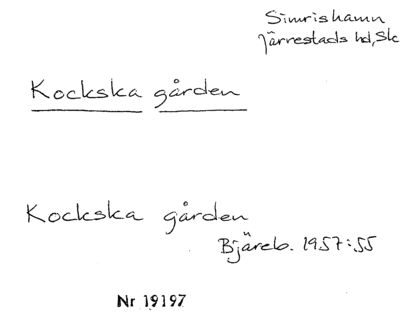 Simrishamn
Järrestads hd, Sk
Kockska gården
Kockska gården
Bjäreb. 1957:55
Nr 19197